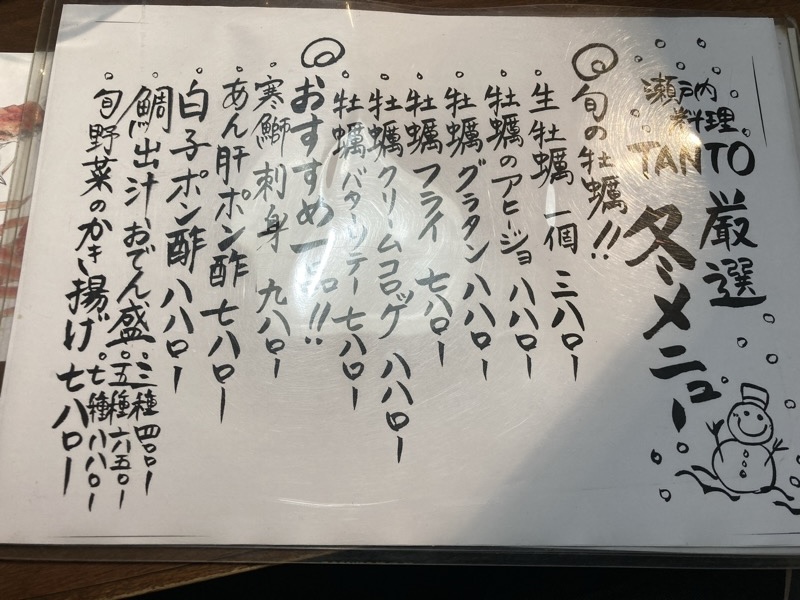 瀬戸内
料理
TANTO
厳選
冬メニュー
旬の牡蠣!!
生牡蠣 一個 三八〇ー
牡蠣のアヒージョ 八八〇ー
牡蠣グラタン 八八〇ー
牡蠣フライ 七八〇ー
牡蠣クリームコロッケ 八八〇ー
牡蠣バターソテー 七八〇ー
おすすめ一品!!
寒鰤刺身 九八〇ー
あん肝ポン酢 七八〇ー
白子ポン酢 八八〇ー
鯛出汁、おでん盛
三種 四〇〇ー
五種 六五〇ー
七種 八八〇ー
旬野菜のかき揚げ 七八〇ー